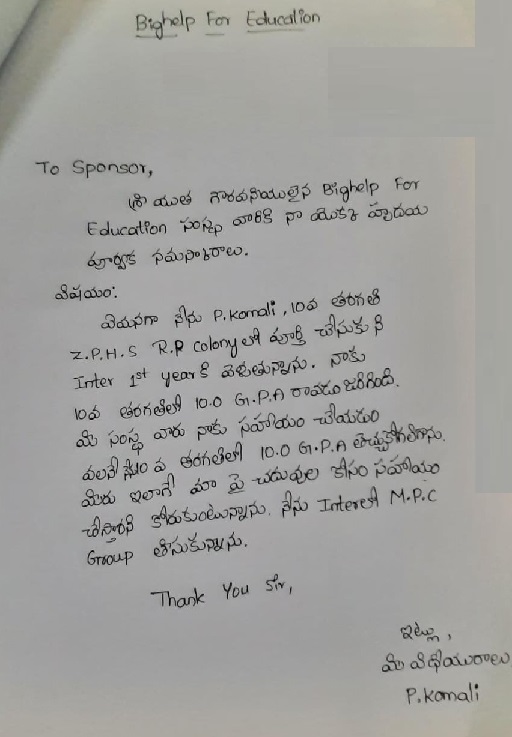 Bighelp For Education
To Sponsor,
శ్రీ యుత గౌరవనీయులైన Bighelp For
Education సంస్థ వారికి నా యొక్క హృదయ
పూర్వక నమస్కారాలు.
విషయం:
ఏమనగా నేను P.komali, 10వ తరగతి
Z.P.H.S R.R Colony లో పూర్తి చేసుకుని
Inter 1st year కి వెళుతున్నాను. నాకు
10వ తరగతిలో 10.0 G.P.A రావడం జరిగింది.
మీ సంస్థ వారు నాకు సహాయం చేయడం
వలన నేను 10 వ తరగతిలో 10.0 G.P.A తెచ్చుకోగలిగాను.
మీరు ఇలాగే మా పై చదువుల కోసం సహాయం
చేస్తారని కోరుకుంటున్నాను. నేను Interలో M.P.C
Group తీసుకున్నాను.
Thank You Sir,
ఇట్లు,
మీ విధేయురాలు
P.komali